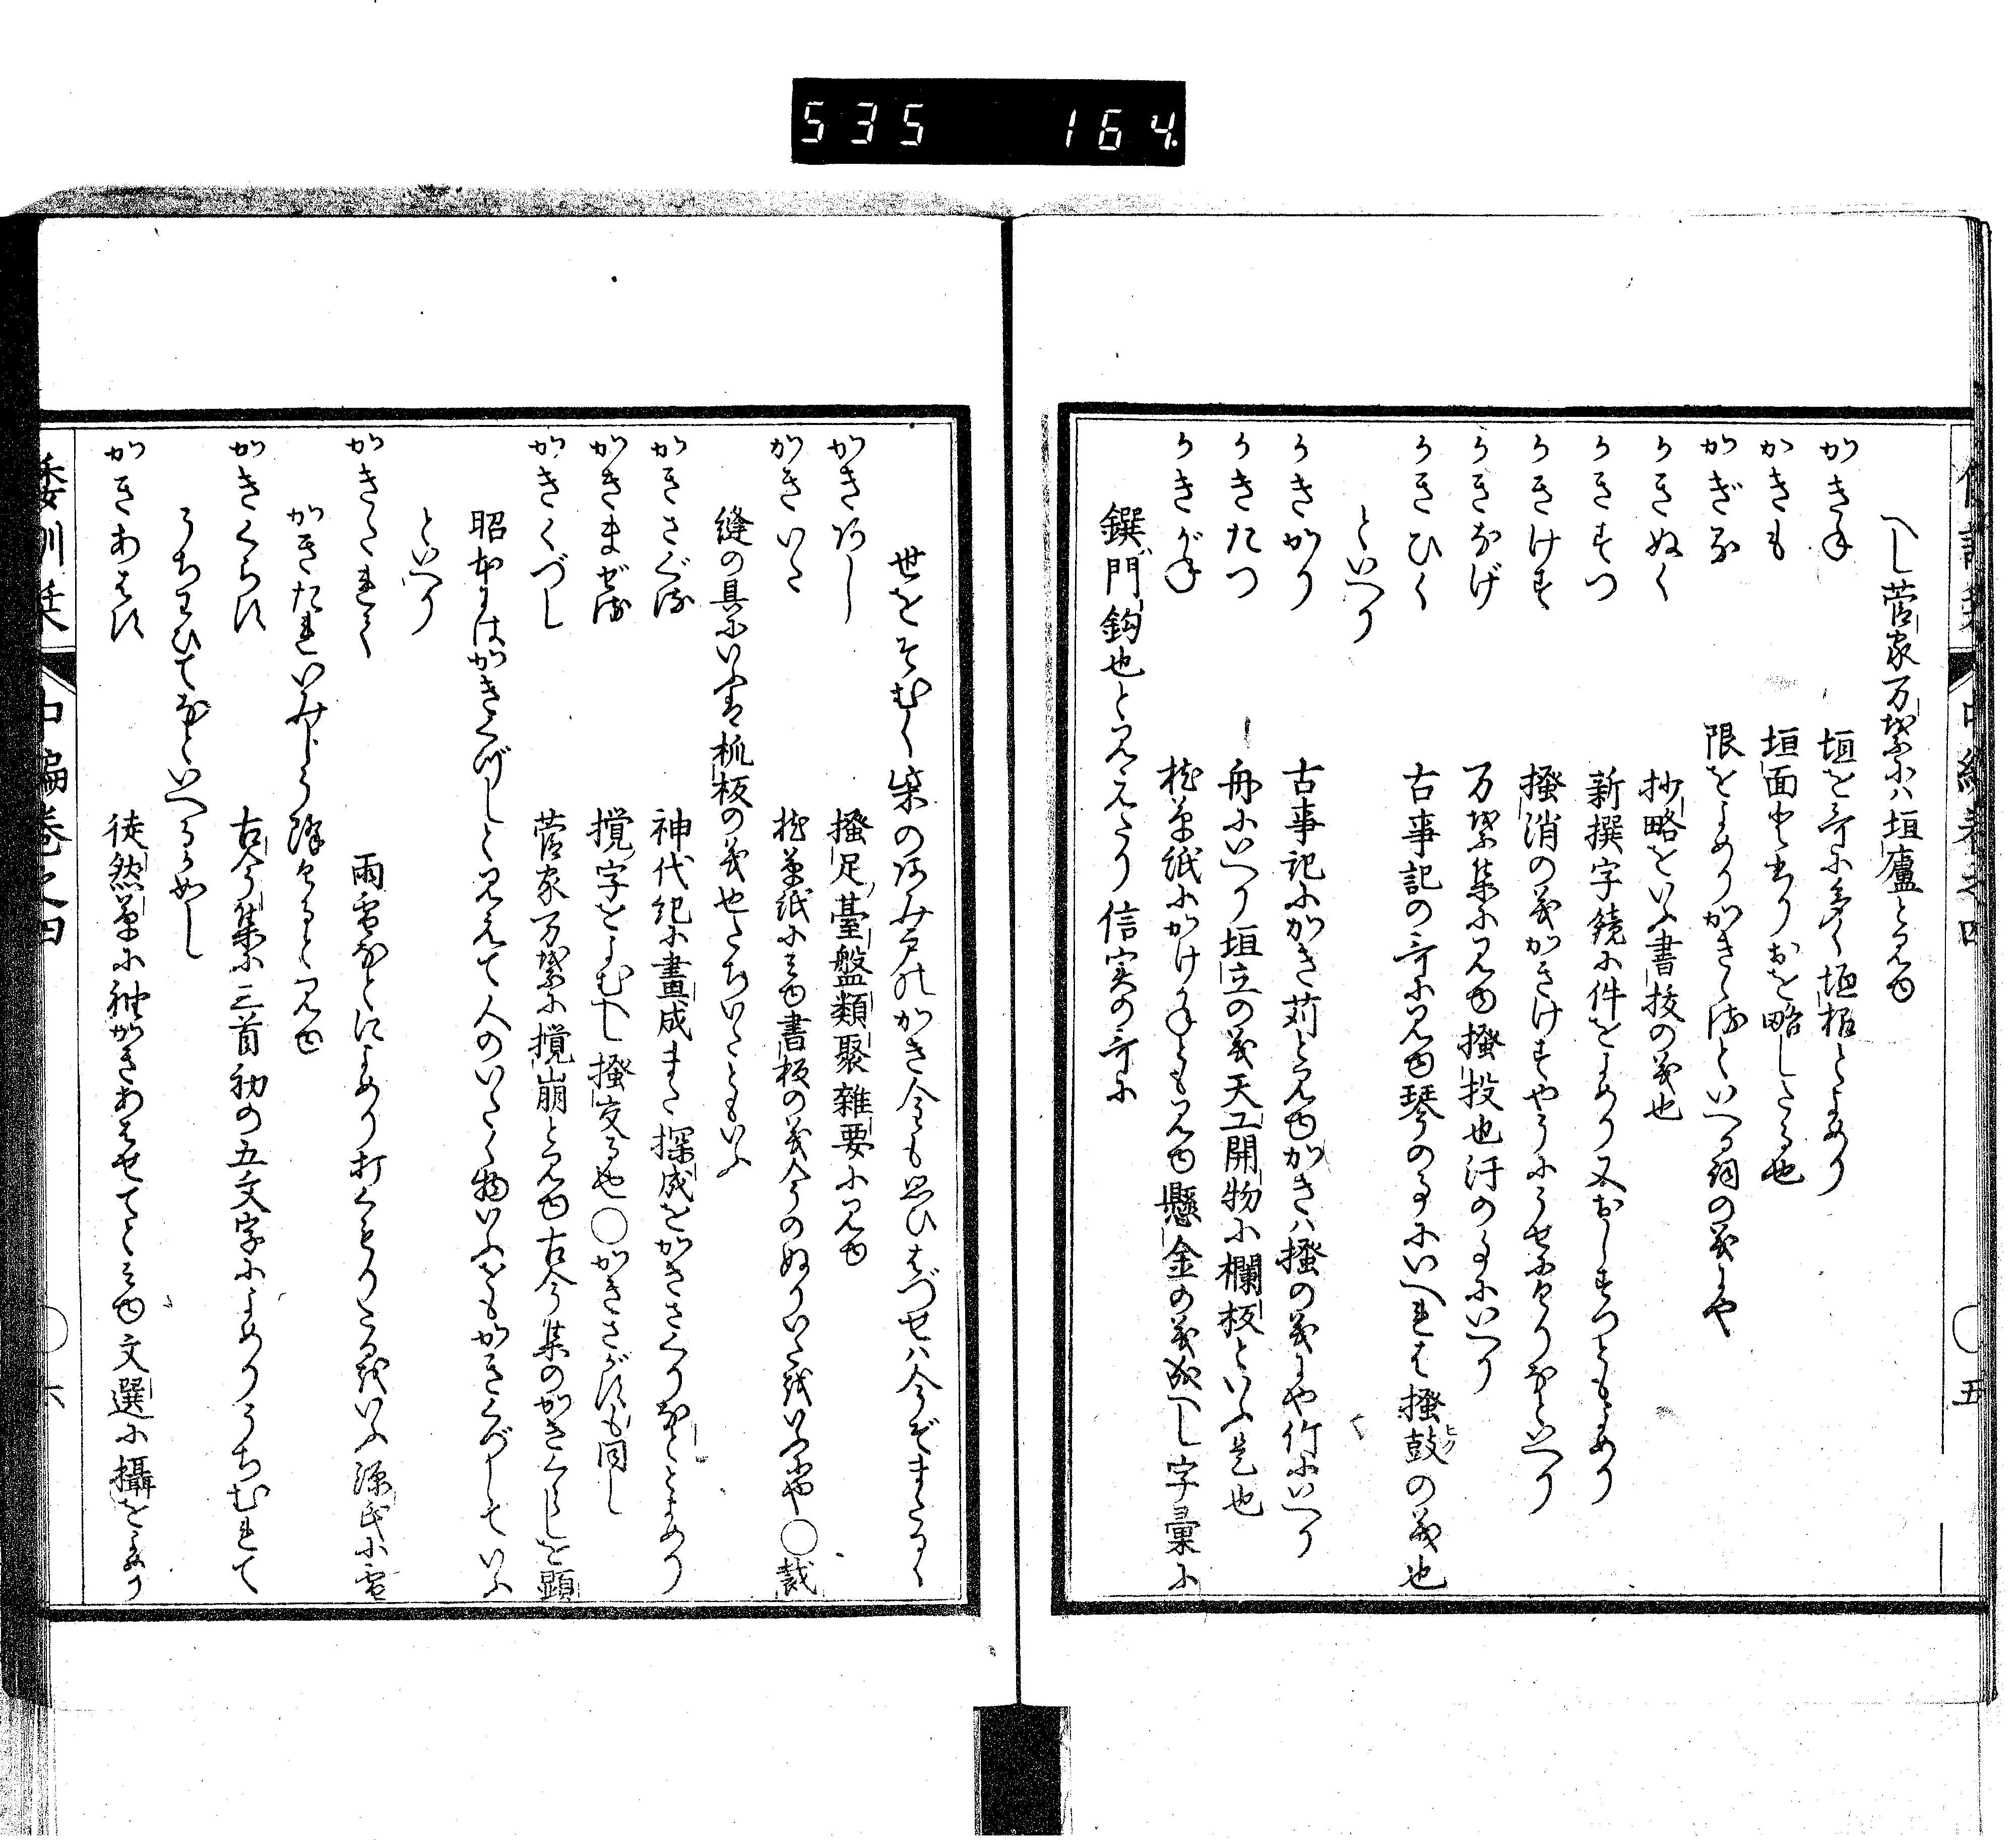 535 164
へし菅家万葉には垣廬とみゆ
かきね 垣を哥に多く垣根とよめり
かきも 垣面也もりおを略したる也
かぎる 限をよめりかきゝるといへる詞の義にや
かきぬく 抄略をいふ書抜の義也
かきすつ 新撰字鏡に件をよめり又おしすつともよめり
かきけす 掻消の義かきけすやうにうせにけりなといへり
かきなげ 万葉集にみゆ掻投也汗の事にいへり
かきひく 古事記の哥にみゆ琴の事にいへれは掻鼓の義也
といへり
かきかり 古事記にかき苅とみゆかきハ掻の義にや竹にいへり
かきたつ 舟にいへり垣立の義天工開物に欄板といふ是也
かきがね 枕草紙にかけかねともみゆ懸金の義成へし字彙に
鐉門鈎也とみえたり信実の哥に
五
世をそむく柴のあみ戸のかき金も思ひはづせハ今ぞまたるゝ
かきあし 掻足臺盤類聚雜要にみゆ
かきいた 枕草紙にみゆ書板の義今のぬりいた成へきにや〇裁
縫の具にいふは板の義也たちいたともいふ
かきさぐる 神代紀に畫成また探成をかきさくりなすとよめり
かきまぜる 攪字をよむへし掻交る也〇かきさがすも同し
かきくづし 菅家万葉に攪崩とみゆ古今集のかきくらしを顕
昭本にはかきくづしとみえて人のいたく物いふをもかきくづしていふ
といへり
かきたれて 雨雪なとによめり打くもりたるをいふ源氏に雪
かきたれいみじう降けるとみゆ
かきくらす 古今集に三首初の五文字によめりうちむれて
うちわひてなといへるか如し
かきあはす 徒然草に袖かきあはせてとみゆ文選に攝をよめり
倭訓栞 中編巻之四 六